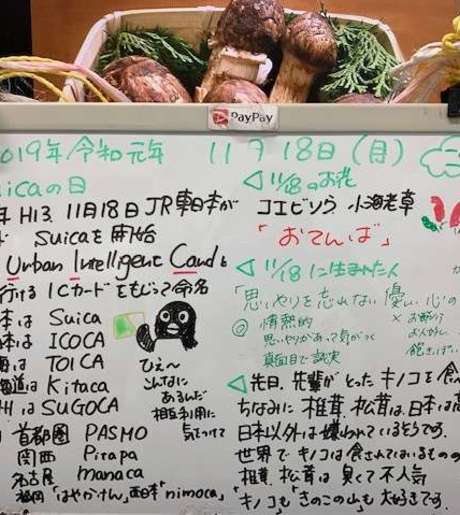 PayPay
2019年 令和元年 11月18日(月)
Suicaの日
年 H13 11月18日 JR東日本が
Suicaを開始
Urban Intelligent Cardと
行けるICカードをもじって命名
本は Suica
本は ICOCA
海は TOICA
海道は Kitaca
州は SUGOCA
首都圏 PASMO
関西 Pitapa
名古屋 manaca
福岡「はやかけん」西日本「nimoca」
ひえ〜
こんなに
あるんだ
相互利用に
気をつけて
◁ 11/18のお花
コエビソウ 小海老草
「おてんば」
◁ 11/18に生まれた人
「思いやりを忘れない優しい心の
◎ 情熱的
思いやりがあって気がつく
真面目で誠実
×
お人好し
◁ 先日、先輩がとったキノコを食べ
ちなみに椎茸、松茸は、日本は高
日本以外は嫌われているそうです。
世界でキノコは食されているものの
椎茸、松茸は臭くて不人気
「キノコも「きのこの山も大好きです。